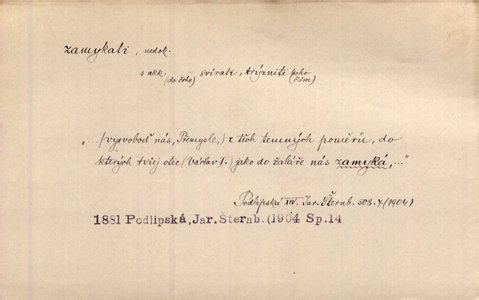 zamykati, nedok.
s akk. (do čeho) svírati, trýzniti koho
(čím)
"...(vysvoboď nás, Přemysle,) z těch temných poměrů, do
kterých tvůj otec (Václav I.) jako do žaláře nás zamyká,..."
Podlipská Jar. Šternb. 508. X (1904)
1881 Podlipská, Jar. Šternb. (1904 Sp.14